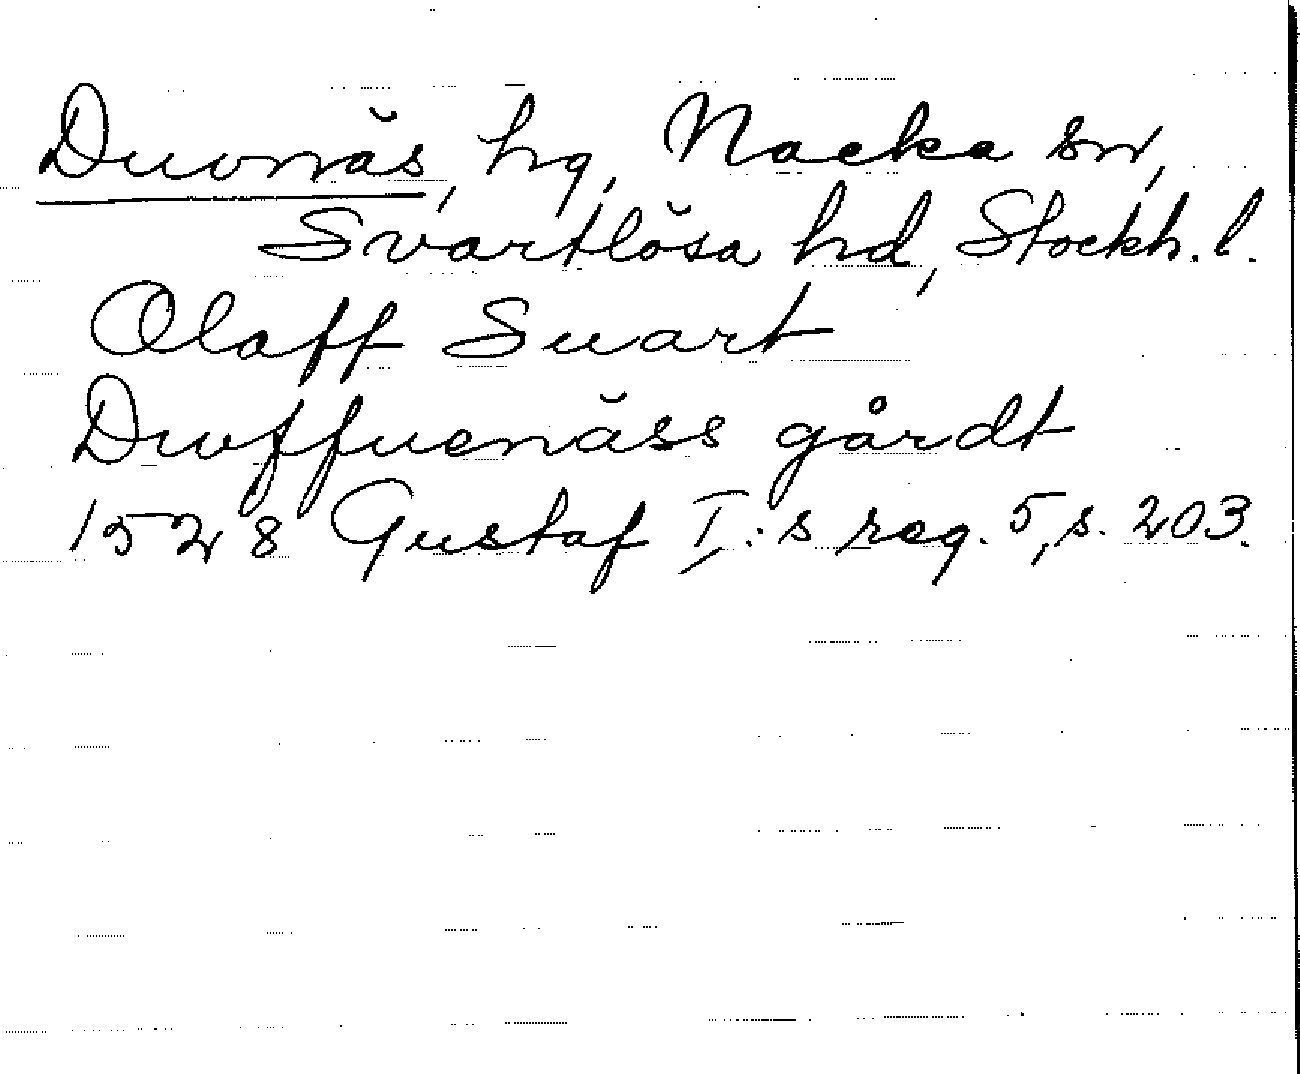 Duvnäs, hg, Nacka sn,
Svartlösa hd, Stockh. l.
Olaff Suart
Duffuenäss gårdt
1528 Gustaf I:s reg. 5, s. 203.